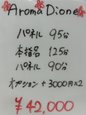 Aroma Dione
パネル 95分
本指名 125分
パネル 90分
オプション +3000円×2
¥42,000